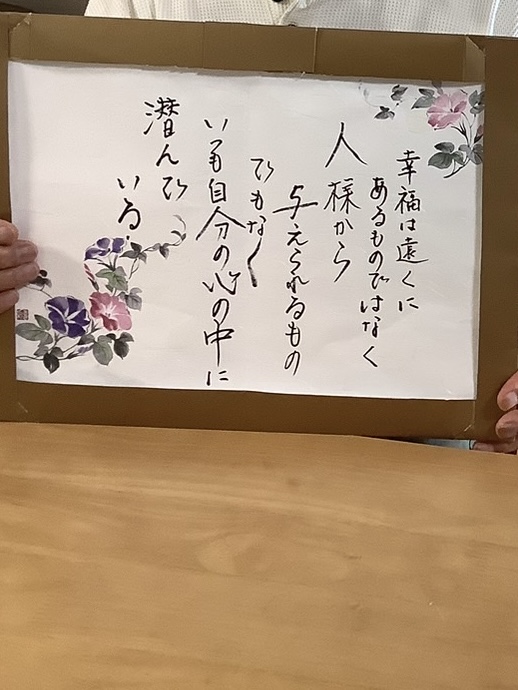 幸福は遠くに
あるものではなく
人様から
与えられるもの
でもなく
いつも自分の心の中に
潜んで
いる.